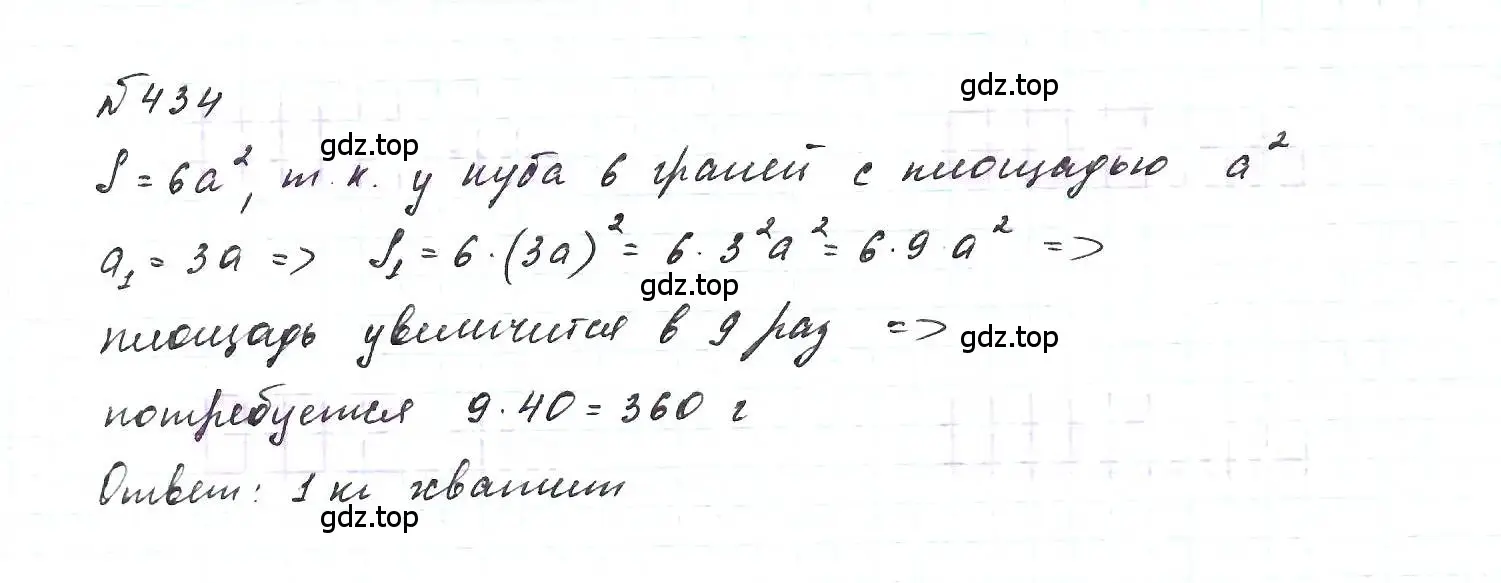 №434
gdz.top
gdz.top
S = 6a², т. к. у куба 6 граней с площадью a²
a₁ = 3a => S₁ = 6·(3a)² = 6·3²a² = 6·9·a² =>
gdz.top
площадь увеличится в 9 раз =>
gdz.top
потребуется 9·40 = 360 г
Ответ: 1 кг хватит
gdz.top